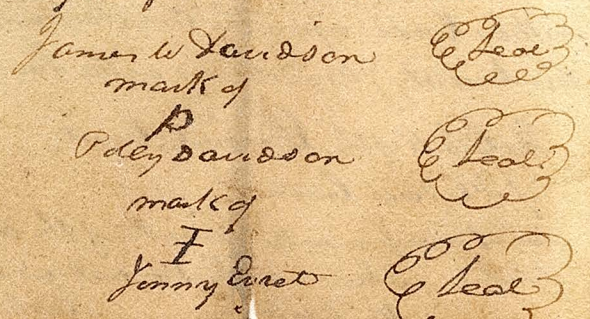 James W Davidson Seal
mark of
P
Polly Davidson Seal
mark of
I
Jinny Evret Seal